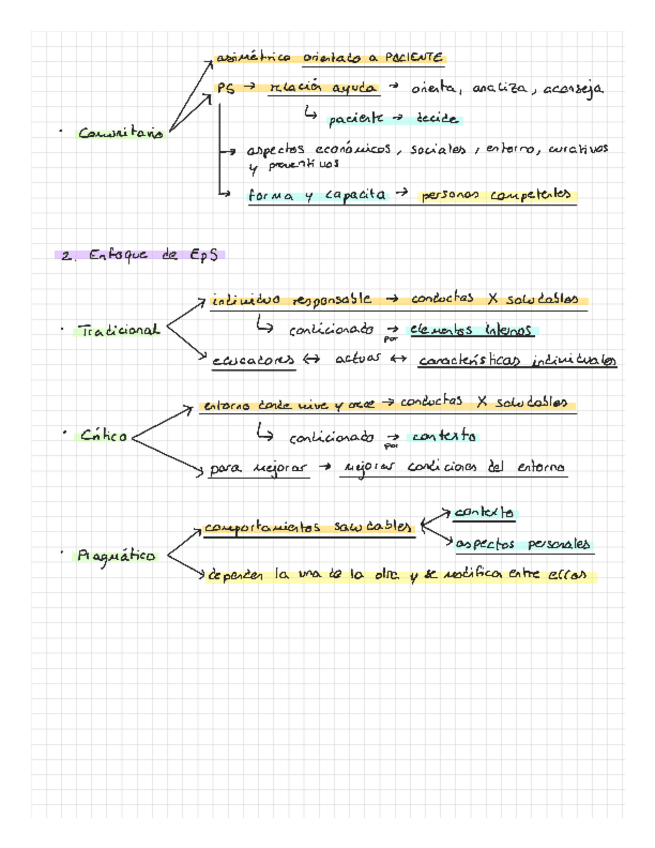 asimétrica orientado a PACIENTE
PS → relación ayuda → orienta, analiza, aconseja
↳ paciente → decide
· Comunitario
→ aspectos económicos, sociales, entorno, curativos
y preventivos
→ forma y capacita → personas competentes
2. Enfoque de EpS
individuo responsable → conductas X saludables
· Tradicional
↳ condicionado → por elementos internos
educadores ↔ actuas ↔ características individuales
entorno donde vive y crece → conductas X saludables
· Crítico
↳ condicionado → por contexto
para mejorar → mejorar condiciones del entorno
contexto
comportamientos saludables
aspectos personales
· Pragmático
dependen la una de la otra y se modifica entre ellas